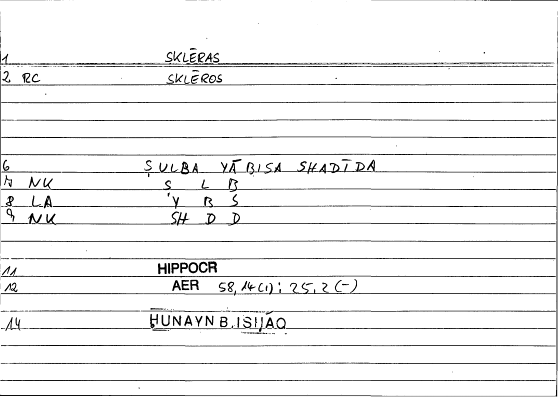 1 SKLĒRAS
2 RC SKLĒROS
6 ṢULBA YĀBISA SHADĪDA
7 NK Ṣ L B
8 LA Y B S
9 NK SH D D
11 HIPPOCR
12 AER 58,14(1); 25,2(-)
14 ḤUNAYN B. ISḤĀQ